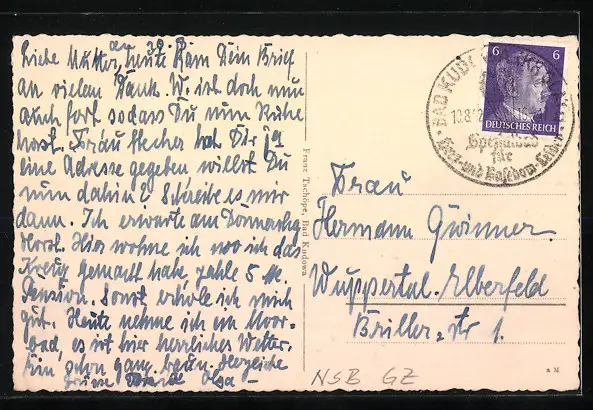 Liebe Mutter, heute kam Dein Brief
an vielen Dank. W. ist doch nun
auch fort sodass Du nun Ruhe
hast. Frau Stecher hat Dir ja
eine Adresse gegeben willst Du
nun dahin? Schreibe es mir
dann. Ich erwarte am Donnerstag
Horst. Hier wohne ich wo ich das
Kreuz gemacht habe, zahle 5 M.
Pension. Sonst erhole ich mich
gut. Heute nehme ich ein Moor-
bad, es ist hier herrliches Wetter.
Bin schon ganz braun. Herzliche
Grüsse Olga
Franz Tschöpe, Bad Kudowa
BAD KUDOWA
10.8.42
Spezialbad
für
Herz- und Basedow-Leiden
6 6
DEUTSCHES REICH
Frau
Hermann Gwinner
Wuppertal-Elberfeld
Briller-Str 1.
NSB GZ